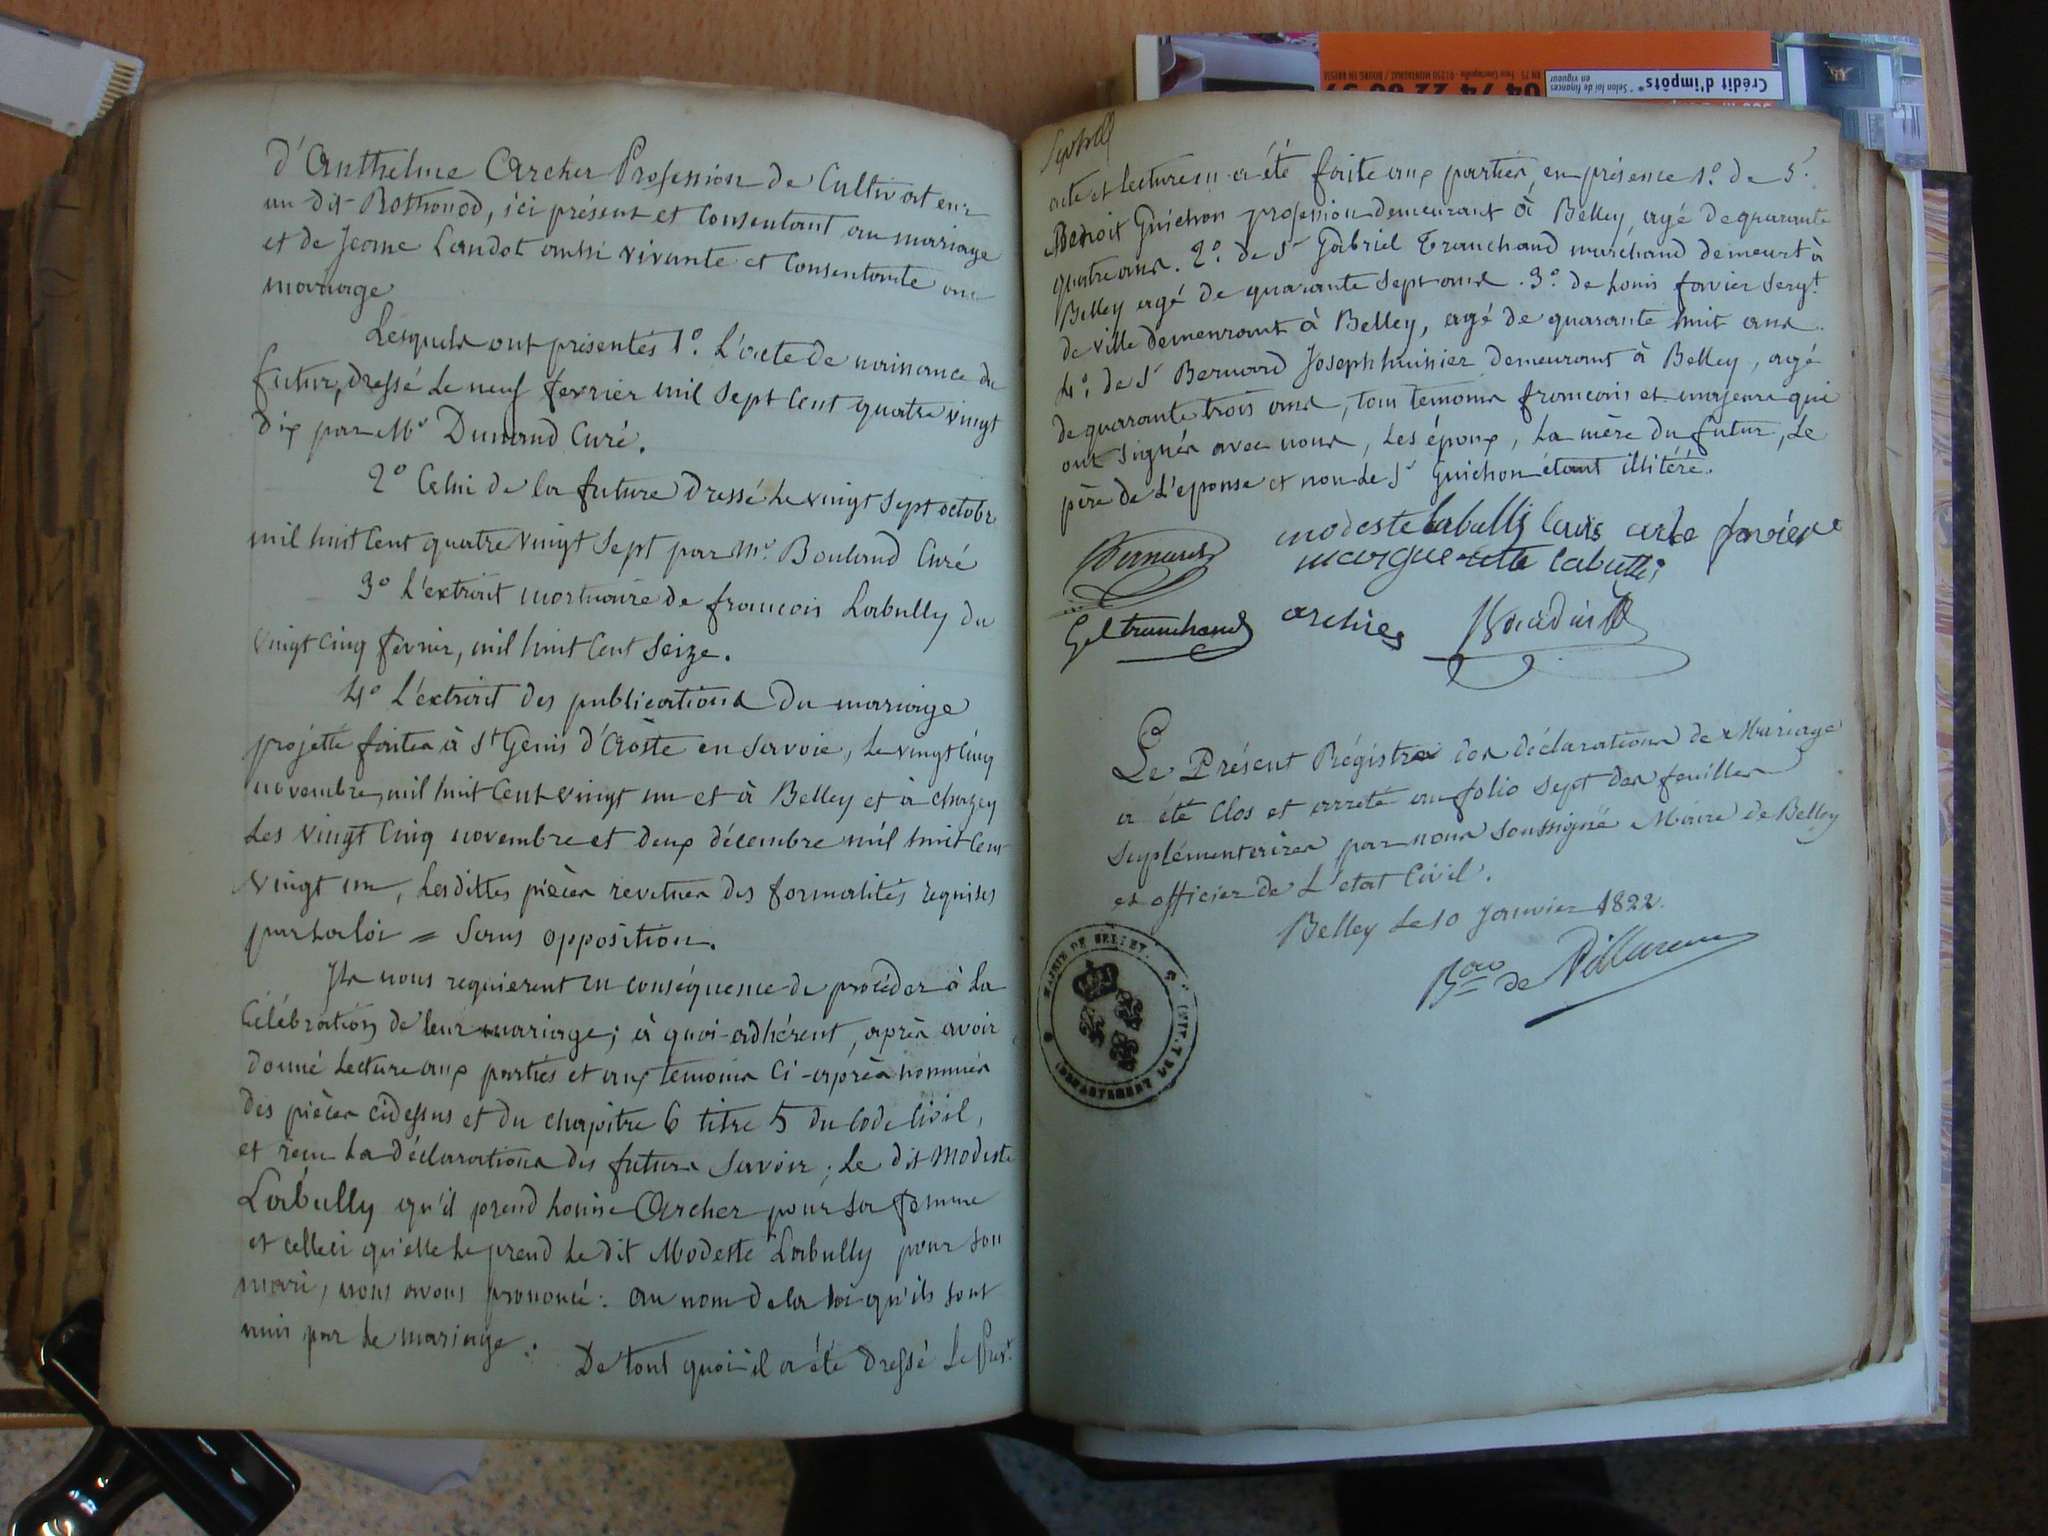 d'Anthelme Archer Profession de Cultivateur
au dit Rothonod, ici présent et Consentant au mariage
et de Jeane Landot aussi vivante et Consentante au
mariage
Lesquels ont présentés 1º. L'acte de naissance du
futur, dressé le neuf fevrier mil sept Cent quatre vingt
dix par Mr Dunand Curé.
2º Celui de la future dressé le vingt sept octobre
mil huit Cent quatre vingt sept par Mr. Bouland Curé
3º L'extrait mortuaire de francois Labully du
vingt cinq fevrier, mil huit Cent Seize.
4º L'extrait des publications du mariage
projetté faites à St Genis d'Aoste en Savoie, le vingt Cinq
novembre mil huit Cent vingt un et à Belley et à Chazey
Les vingt Cinq novembre et deux décembre mil huit Cent
vingt un, Lesdittes pièces revetues des formalités requises
par La loi = Sans opposition.
Ils nous requierent en conséquence de procéder à La
Célébration de leur mariage; à quoi adhérent, après avoir
donné Lecture aux parties et aux temoins Ci-après nommés
des pièces cidessus et du chapitre 6 titre 5 du Code Civil,
et recu La déclarations des futurs Savoir; Le dit Modeste
Labully qu'il prend Louise Archer pour sa femme
et celleci qu'elle prend Le dit Modeste Labully pour son
mari, nous avons prononcé: au nom de la loi qu'ils sont
unis par le mariage.
De tout quoi il a été dressé Le Prest
acte et Lecture en a été faite aux parties, en présence 1º. de Sr
Benoit Guichon profession demeurant à Belley, agé de quarante
quatre ans. 2º. de Sr Gabriel Tranchand marchand demeurt à
Belley agé de quarante Sept ans. 3º. de Louis favier Sergt
de ville demeurant à Belley, agé de quarante huit ans.
4º. de Sr Bernard Joseph demeurant à Belley, agé
de quarante trois ans, tous temoins francois et majeurs qui
ont Signés avec nous, Les époux, La mère du futur, Le
père de L'épouse et non le Sr Guichon étant illitéré.
modeste labulli Louis favier
marguerite labulli
Gel tranchand archer
Le Présent Régistre des déclarations de Mariage
a été Clos et arreté au folio Sept des feuilles
Suplémentaires par nous Soussigné Maire de Belley
et officier de L'etat Civil.
Belley Le 10 Janvier 1822.
Bon de
MAIRIE DE BELLEY
DÉPARTEMENT DE
Crédit d'impôts*
* Selon loi de finances
en vigueur
04 74 22